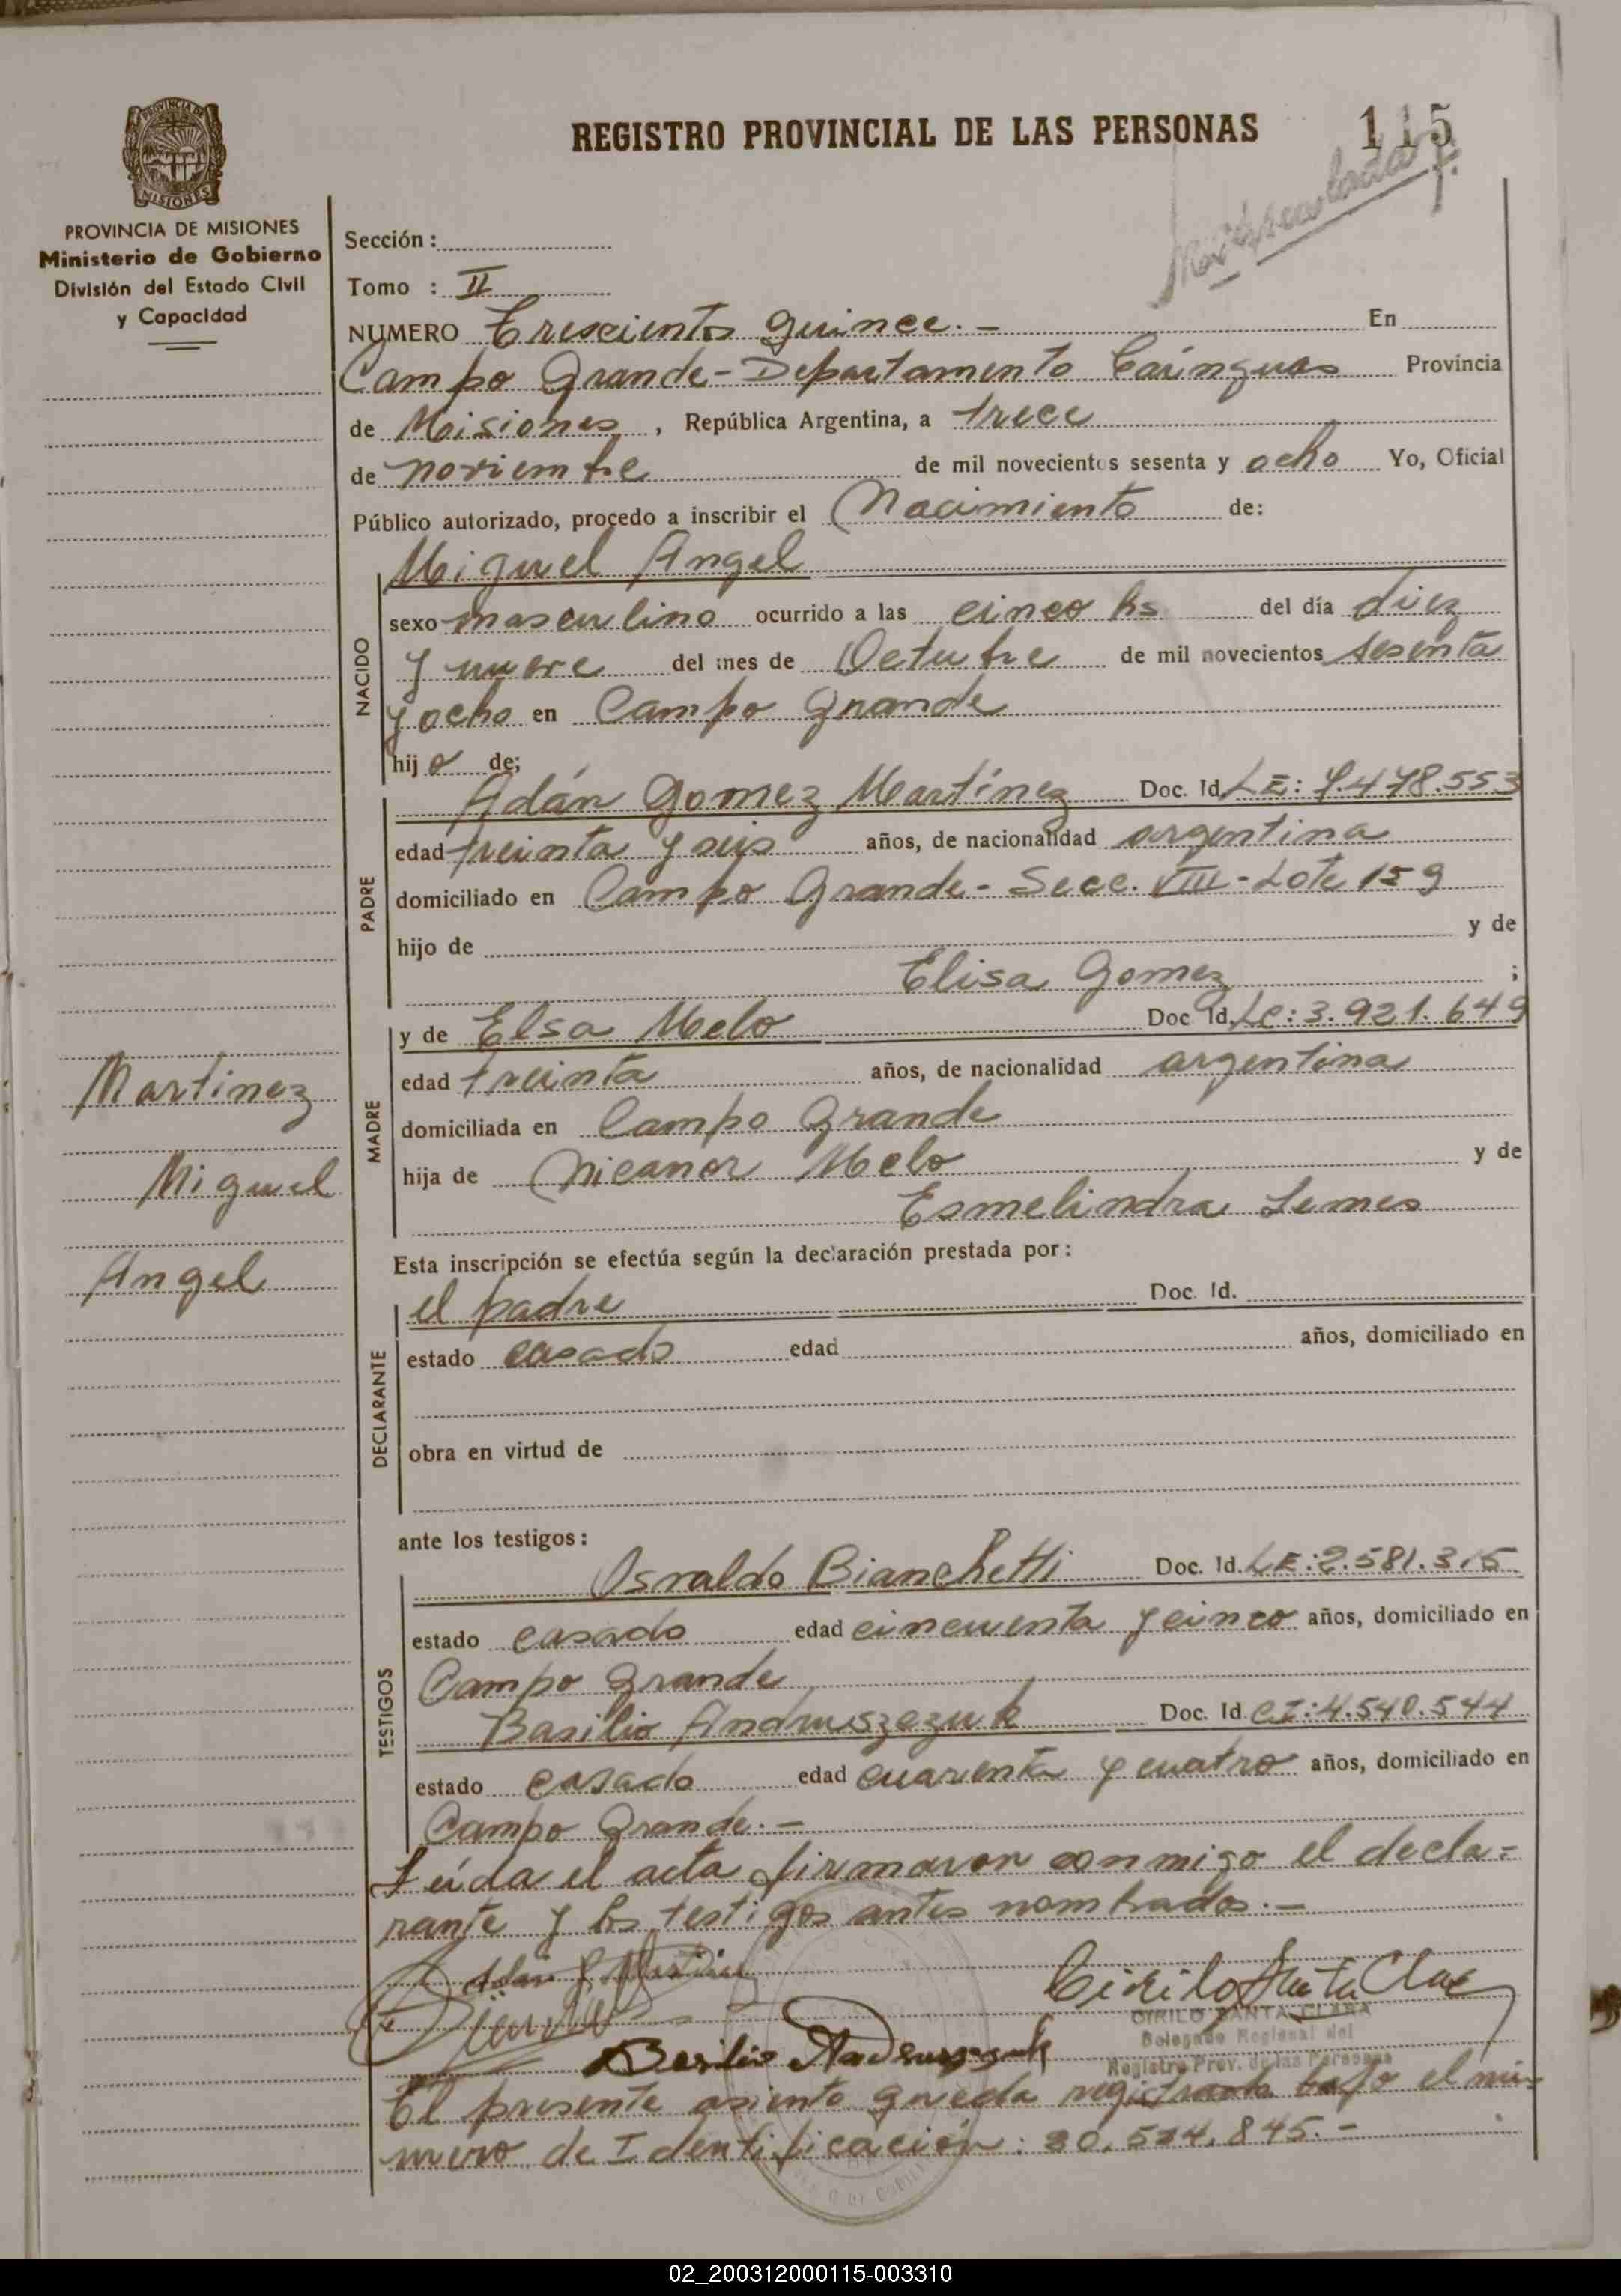 REGISTRO PROVINCIAL DE LAS PERSONAS 115
MISIONES
PROVINCIA DE MISIONES
Ministerio de Gobierno
División del Estado Civil
y Capacidad
Sección :
Tomo : II
NUMERO Trescientos quince.- En
Campo Grande-Departamento Cainguas Provincia
de Misiones, República Argentina, a trece
de noviembre de mil novecientos sesenta y ocho Yo, Oficial
Público autorizado, procedo a inscribir el Nacimiento de:
Miguel Angel
NACIDO
sexo masculino ocurrido a las cinco hs del día diez
y nueve del mes de Octubre de mil novecientos sesenta
y ocho en Campo Grande
hijo de;
PADRE
Adán Gomez Martínez Doc. Id. LE: 7.478.553
edad treinta y seis años, de nacionalidad argentina
domiciliado en Campo Grande- Secc. VIII - Lote 159
hijo de y de
Elisa Gomez ;
MADRE
y de Elsa Melo Doc Id. LC: 3.921.649
edad treinta años, de nacionalidad argentina
domiciliada en Campo Grande
hija de Nicanor Melo y de
Esmelindra Lemes
Martinez
Miguel
Angel
Esta inscripción se efectúa según la declaración prestada por:
DECLARANTE
el padre Doc. Id.
estado casado edad años, domiciliado en
obra en virtud de
ante los testigos:
TESTIGOS
Osvaldo Bianchetti Doc. Id. LE: 2.581.315
estado casado edad cincuenta y cinco años, domiciliado en
Campo Grande
Basilio Andruszezuk Doc. Id CI: 4.540.544
estado casado edad cuarenta y cuatro años, domiciliado en
Campo Grande.-
Leída el acta firmaron conmigo el decla=
rante y los testigos antes nombrados.-
Cirilo Santa Clara
CIRILO SANTA CLARA
Delegado Regional del
Registro Prov. de las Personas
El presente asiento queda registrado bajo el nú-
mero de Identificación: 20.524.845.-
02_200312000115-003310